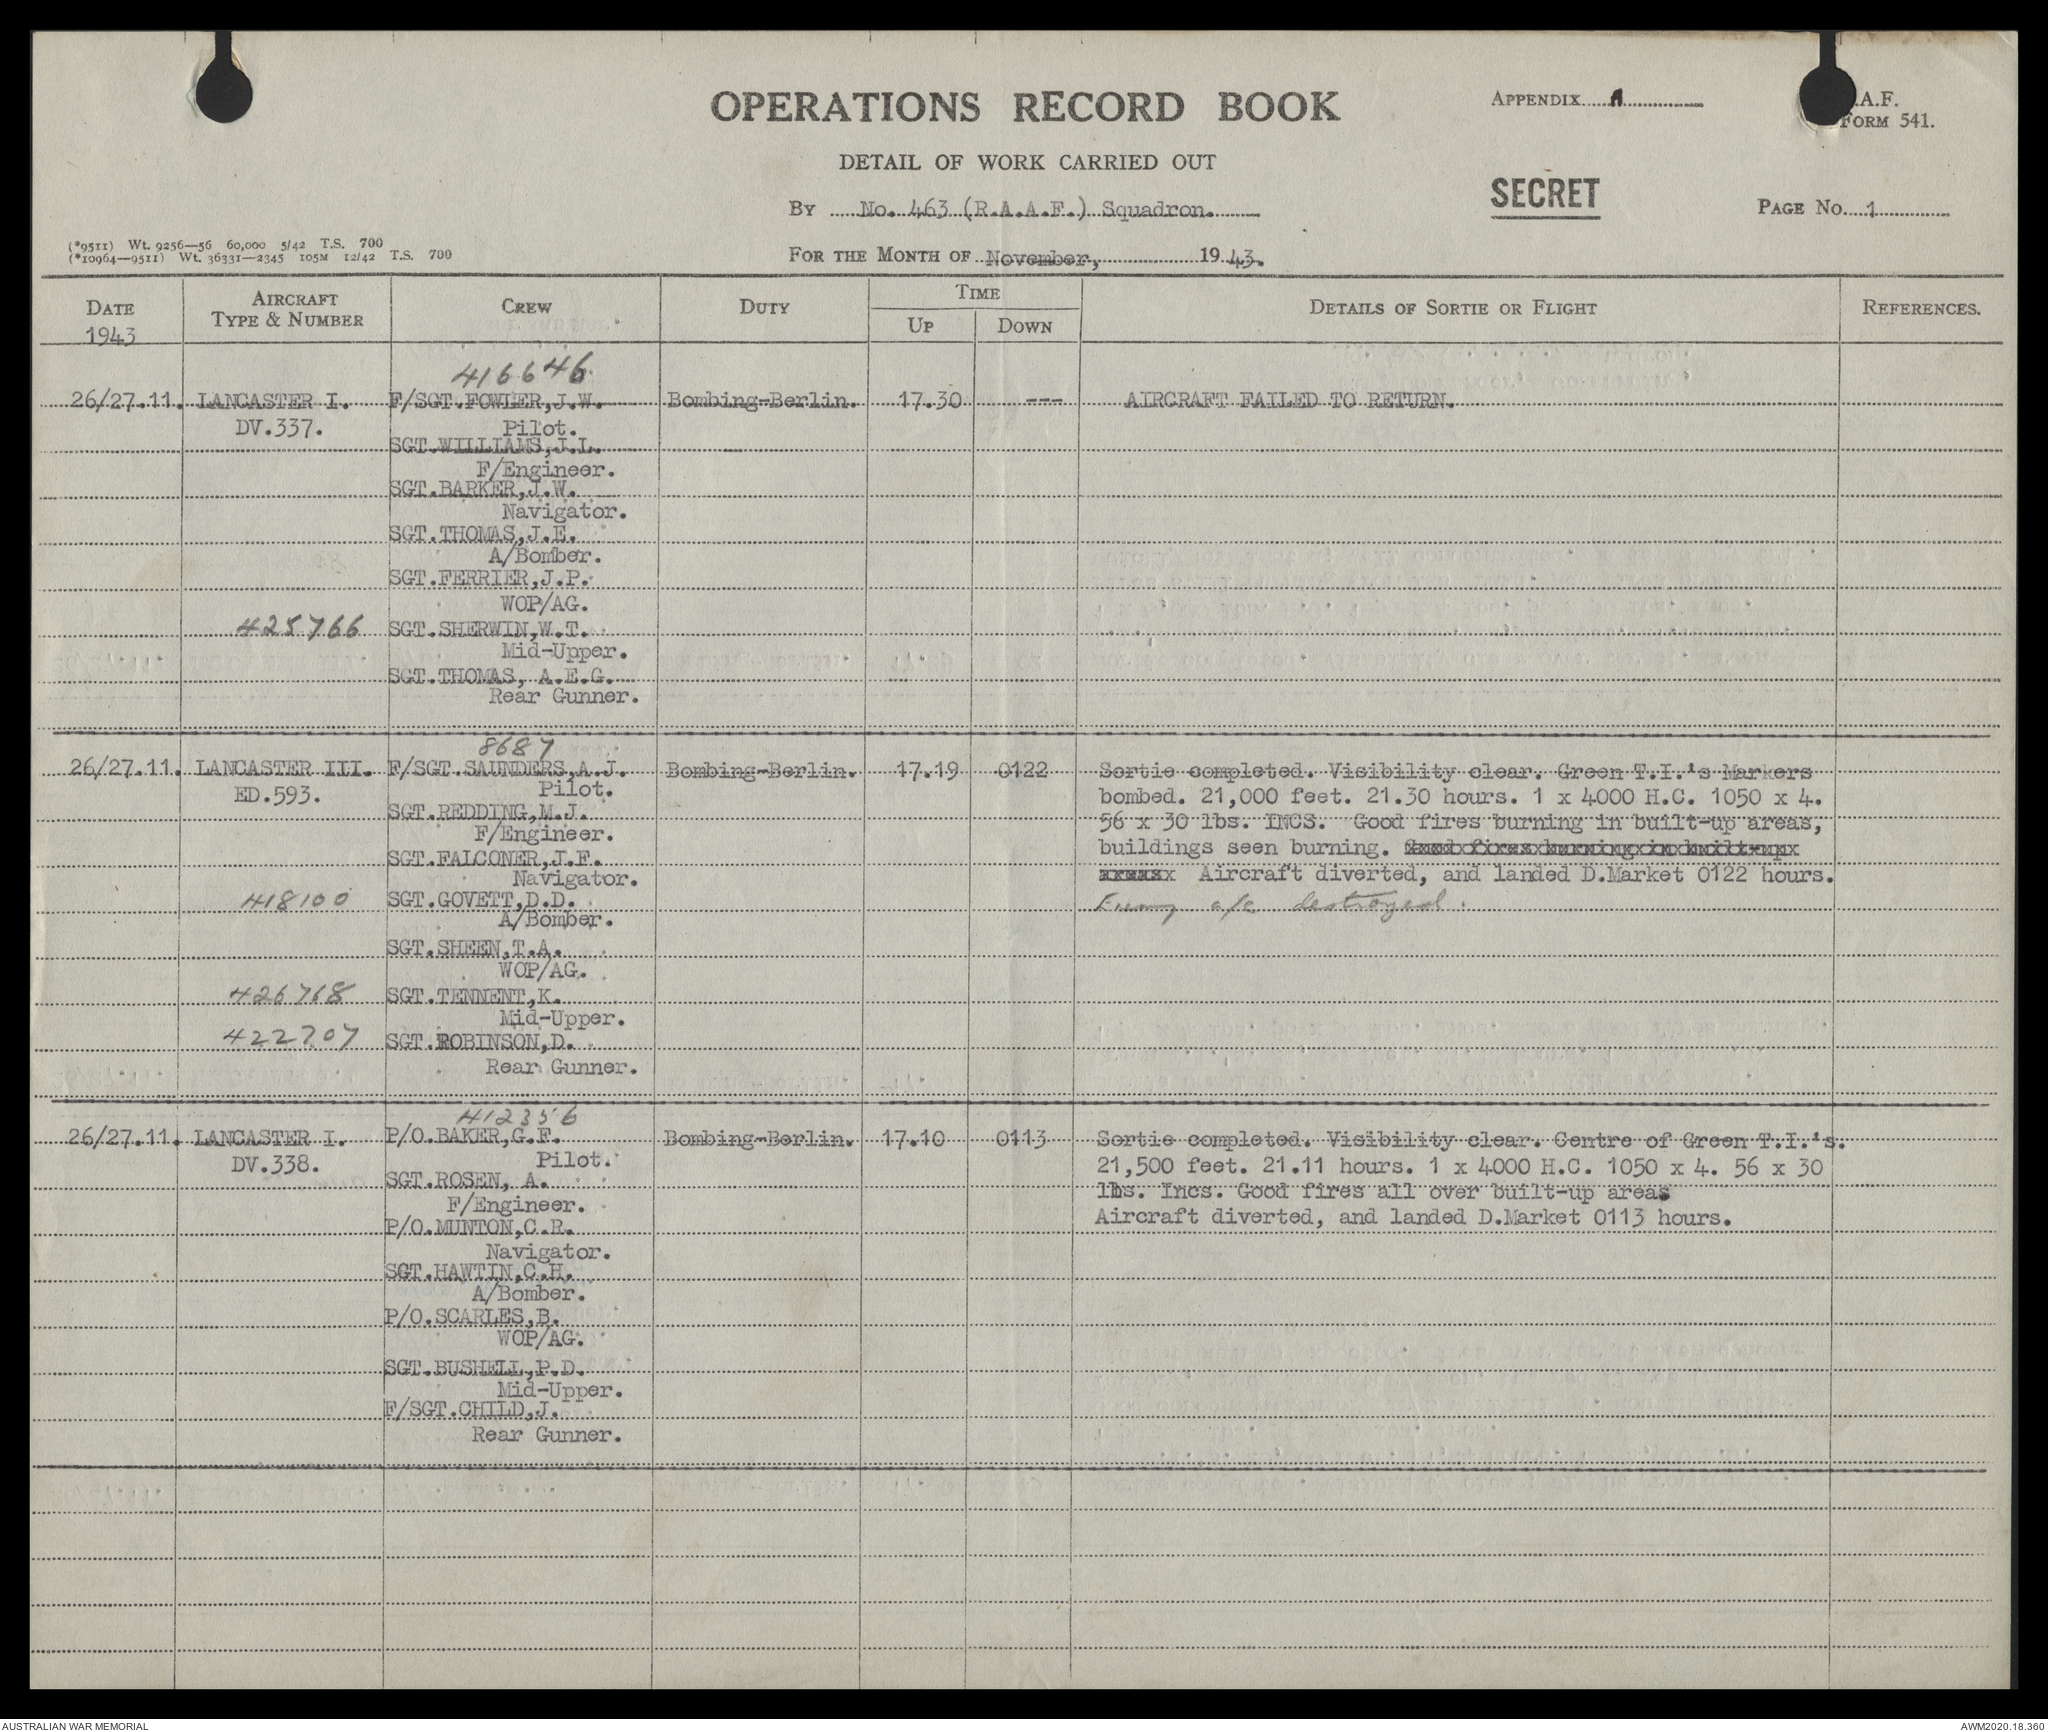 OPERATIONS RECORD BOOK
APPENDIX A
.A.F.
FORM 541.
DETAIL OF WORK CARRIED OUT
SECRET
By No. 463 (R.A.A.F.) Squadron.
PAGE No. 1
(*9511) Wt. 9256—56 60,000 5/42 T.S. 700
(*10964—9511) Wt. 36331—2345 105M 12/42 T.S. 700
FOR THE MONTH OF November, 1943.
DATE
1943
AIRCRAFT
TYPE & NUMBER
CREW
DUTY
TIME
UP
DOWN
DETAILS OF SORTIE OR FLIGHT
REFERENCES.
416646
26/27.11. LANCASTER I. F/SGT.FOWLER,J.W. Bombing-Berlin. 17.30 --- AIRCRAFT FAILED TO RETURN.
DV.337. Pilot.
SGT.WILLIAMS,J.L.
F/Engineer.
SGT.BARKER,J.W.
Navigator.
SGT.THOMAS,J.E.
A/Bomber.
SGT.FERRIER,J.P.
WOP/AG.
425766 SGT.SHERWIN,W.T.
Mid-Upper.
SGT.THOMAS, A.E.G.
Rear Gunner.
8687
26/27.11. LANCASTER III. F/SGT.SAUNDERS,A.J. Bombing-Berlin. 17.19 0122 Sortie completed. Visibility clear. Green T.I.'s Markers
ED.593. Pilot. bombed. 21,000 feet. 21.30 hours. 1 x 4000 H.C. 1050 x 4.
SGT.REDDING,M.J. 56 x 30 lbs. INCS. Good fires burning in built-up areas,
F/Engineer. buildings seen burning. Good fires burning in built-up
SGT.FALCONER,J.F.
Navigator. Aircraft diverted, and landed D.Market 0122 hours.
418100 SGT.GOVETT,D.D. Enemy a/c destroyed.
A/Bomber.
SGT.SHEEN,T.A.
WOP/AG.
426768 SGT.TENNENT,K.
Mid-Upper.
422707 SGT.ROBINSON,D.
Rear Gunner.
412356
26/27.11. LANCASTER I. P/O.BAKER,G.F. Bombing-Berlin. 17.10 0113 Sortie completed. Visibility clear. Centre of Green T.I.'s.
DV.338. Pilot. 21,500 feet. 21.11 hours. 1 x 4000 H.C. 1050 x 4. 56 x 30
SGT.ROSEN, A. lbs. Incs. Good fires all over built-up areas
F/Engineer. Aircraft diverted, and landed D.Market 0113 hours.
P/O.MUNTON,C.R.
Navigator.
SGT.HAWTIN,C.H.
A/Bomber.
P/O.SCARLES,B.
WOP/AG.
SGT.BUSHELL,P.D.
Mid-Upper.
F/SGT.CHILD,J.
Rear Gunner.
AUSTRALIAN WAR MEMORIAL
AWM2020.18.360